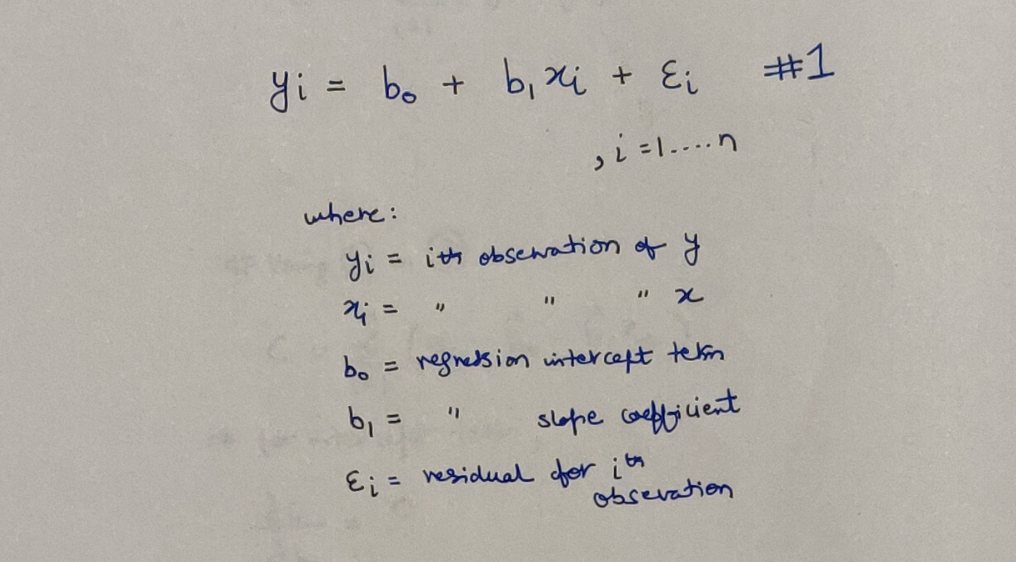 yi = b₀ + b₁xi + εi #1
, i = 1....n
where:
yi = ith observation of y
xi = " " " x
b₀ = regression intercept term
b₁ = " slope coefficient
εi = residual for ith
obsevation